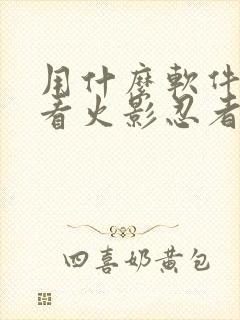 用什麼軟件
看火影忍者
四喜奶黄包